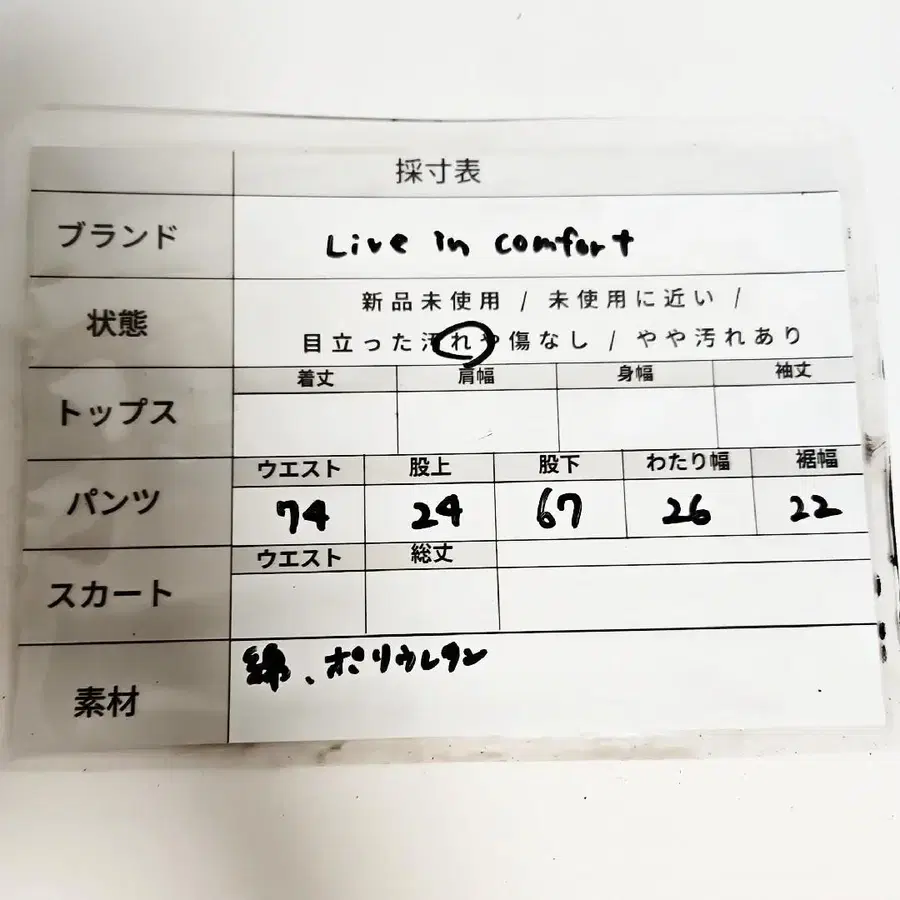 採寸表
ブランド Live in comfort
状態 新品未使用 / 未使用に近い /
目立った汚れや傷なし / やや汚れあり
着丈 肩幅 身幅 袖丈
トップス
ウエスト 股上 股下 わたり幅 裾幅
パンツ 74 24 67 26 22
ウエスト 総丈
スカート
素材 綿、ポリウレタン